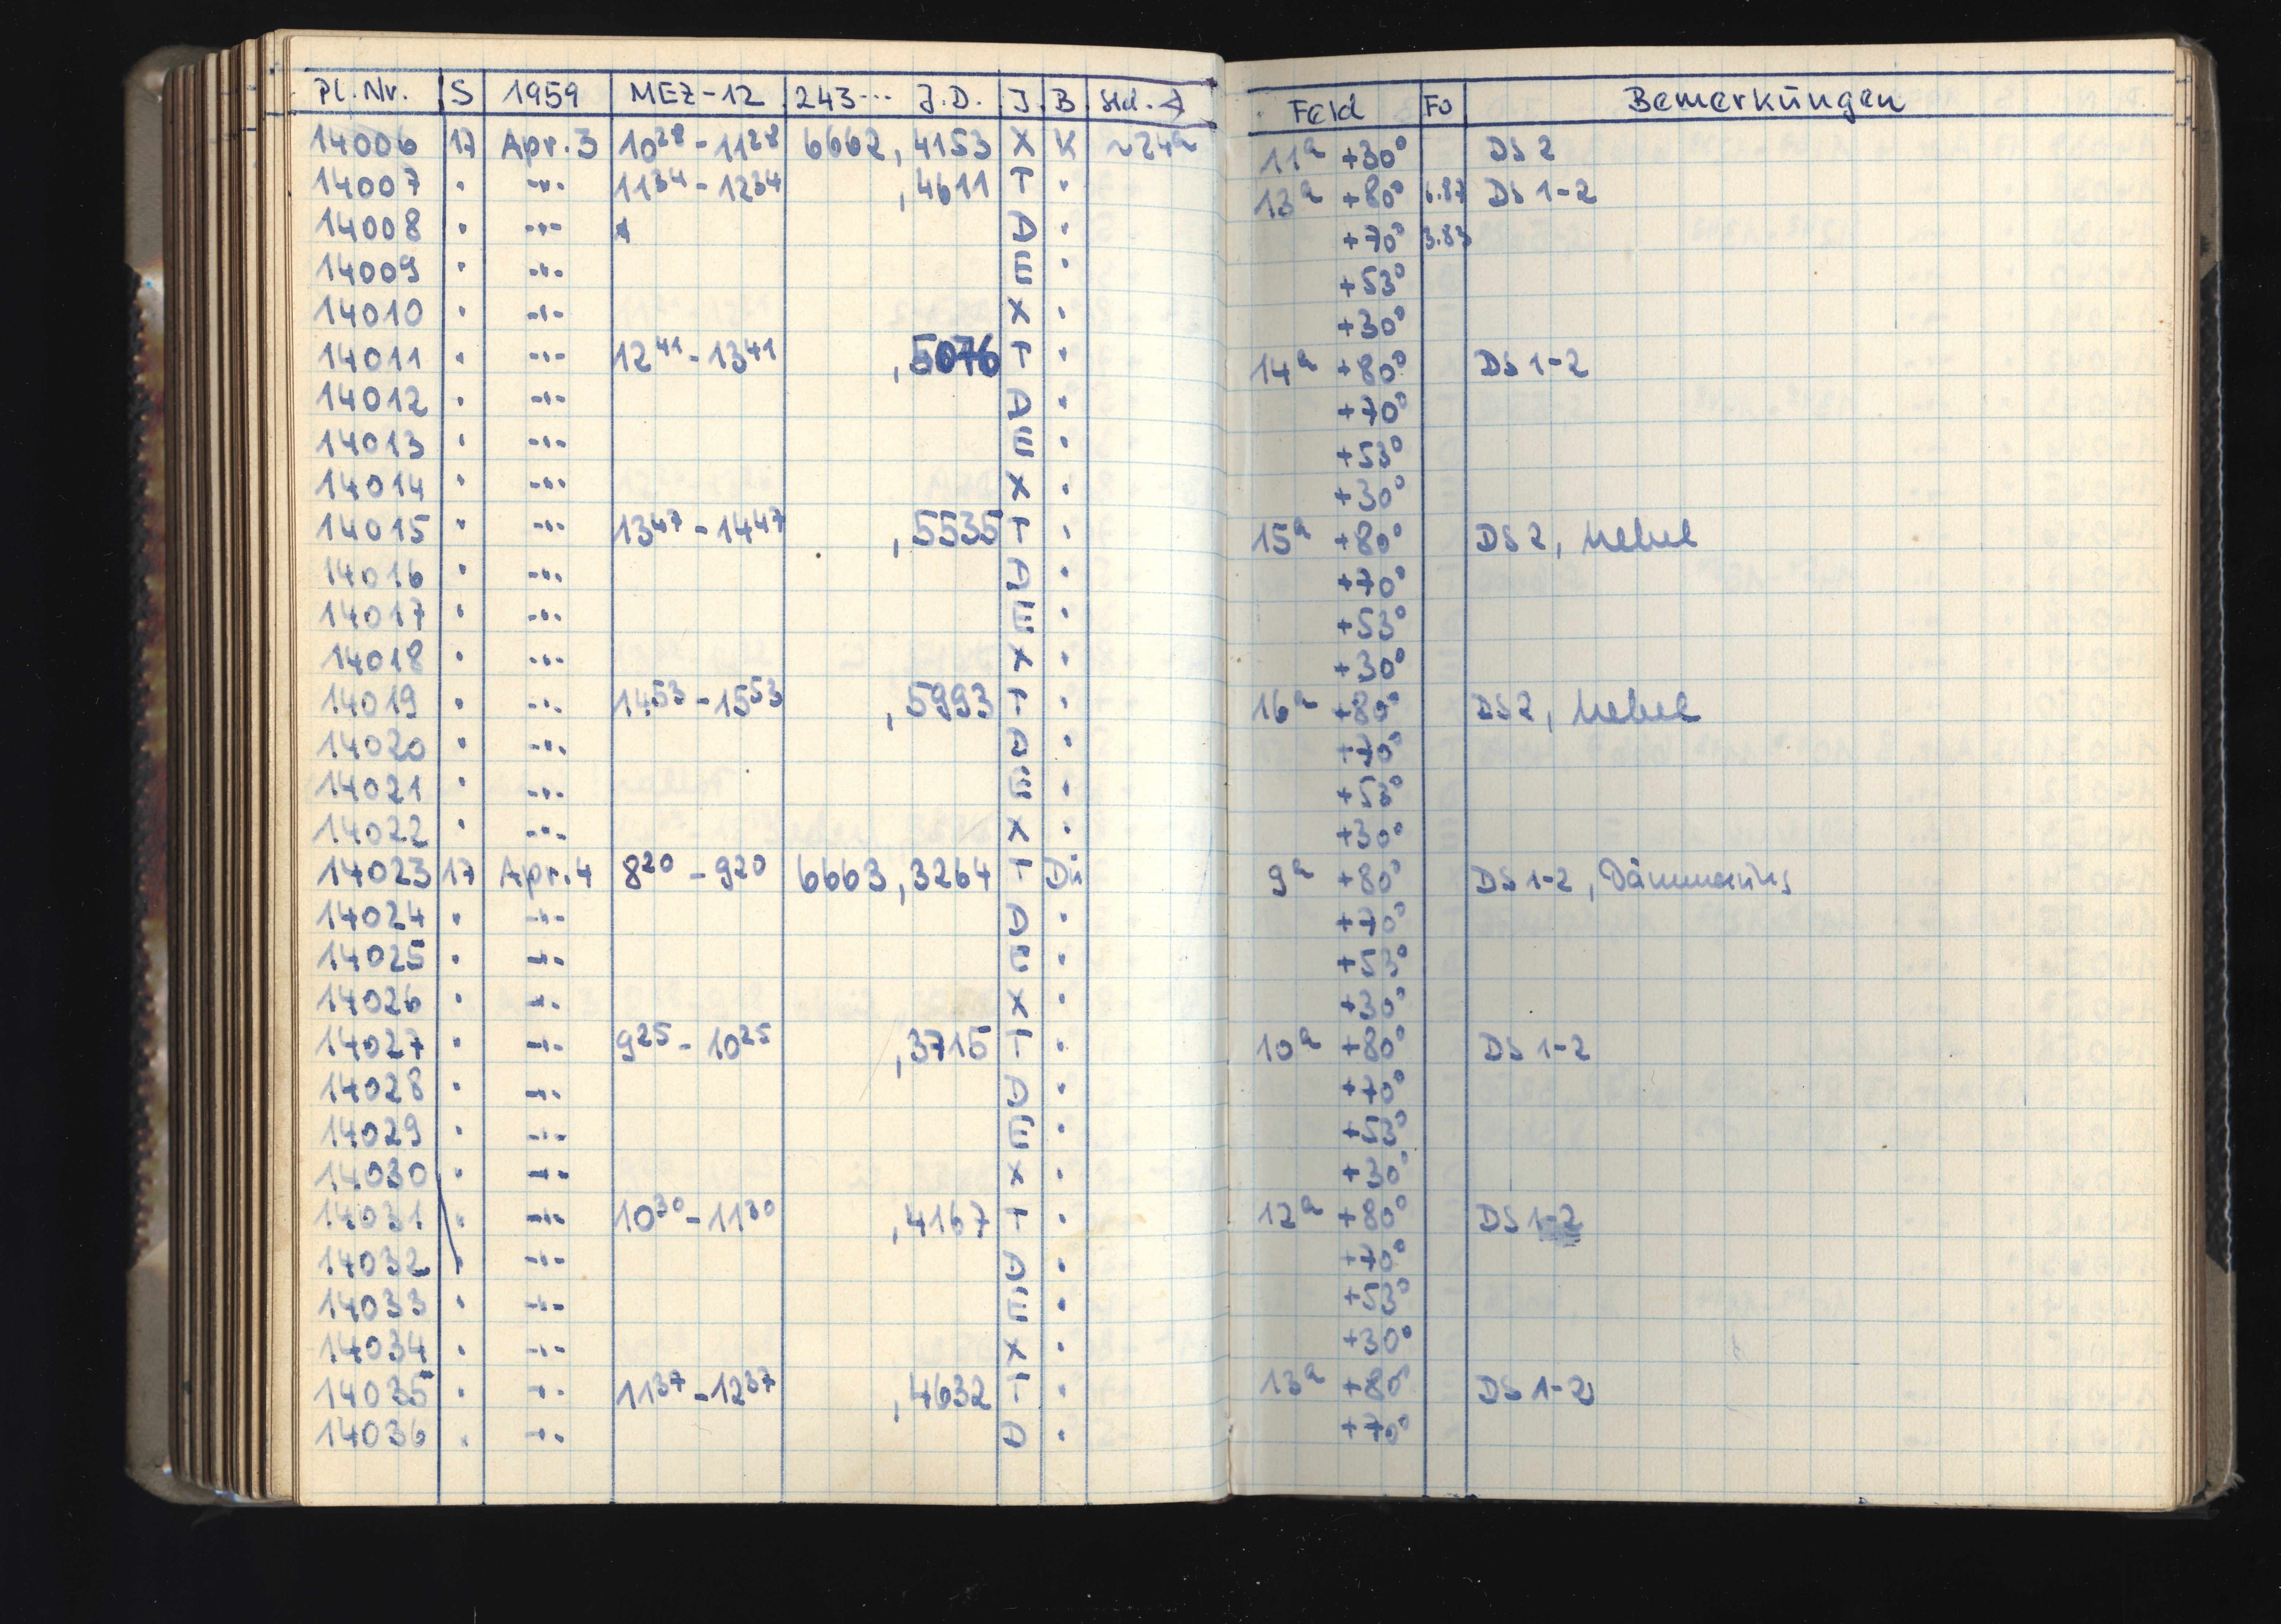 Pl.Nr. S 1959 MEZ-12 243... J.D. J. B Std. Feld Fo Bemerkungen
14006 17 Apr. 3 10 28 - 11 28 6662,4153 X K ~24h 11h +30° DS 2
14007 . -"- 11 34 - 12 34 ,4611 T . 13h +80° DS 1-2
14008 . -"- D . +70° 3.83
14009 . -"- E . +53°
14010 . -"- X . +30°
14011 . -"- 12 41 - 13 41 ,5076 T . 14h +80° DS 1-2
14012 . -"- D . +70°
14013 . -"- E . +53°
14014 . -"- X . +30°
14015 . -"- 13 47 - 14 47 ,5535 T . 15h +80° DS 2, Nebel
14016 . -"- D . +70°
14017 . -"- E . +53°
14018 . -"- X . +30°
14019 . -"- 14 53 - 15 53 ,5993 T . 16h +80° DS 2, Nebel
14020 . -"- D . +70°
14021 . -"- E . +53°
14022 . -"- X . +30°
14023 17 Apr. 4 8 20 - 9 20 6663,3264 T Dü 9h +80° DS 1-2, Dämmerung
14024 . -"- D . +70°
14025 . -"- E . +53°
14026 . -"- X . +30°
14027 . -"- 9 25 - 10 25 ,3715 T . 10h +80° DS 1-2
14028 . -"- D . +70°
14029 . -"- E . +53°
14030 . -"- X . +30°
14031 . -"- 10 30 - 11 30 ,4167 T . 12h +80° DS 1-2
14032 . -"- D . +70°
14033 . -"- E . +53°
14034 . -"- X . +30°
14035 . -"- 11 37 - 12 37 ,4632 T . 13h +80° DS 1-2
14036 . -"- D . +70°